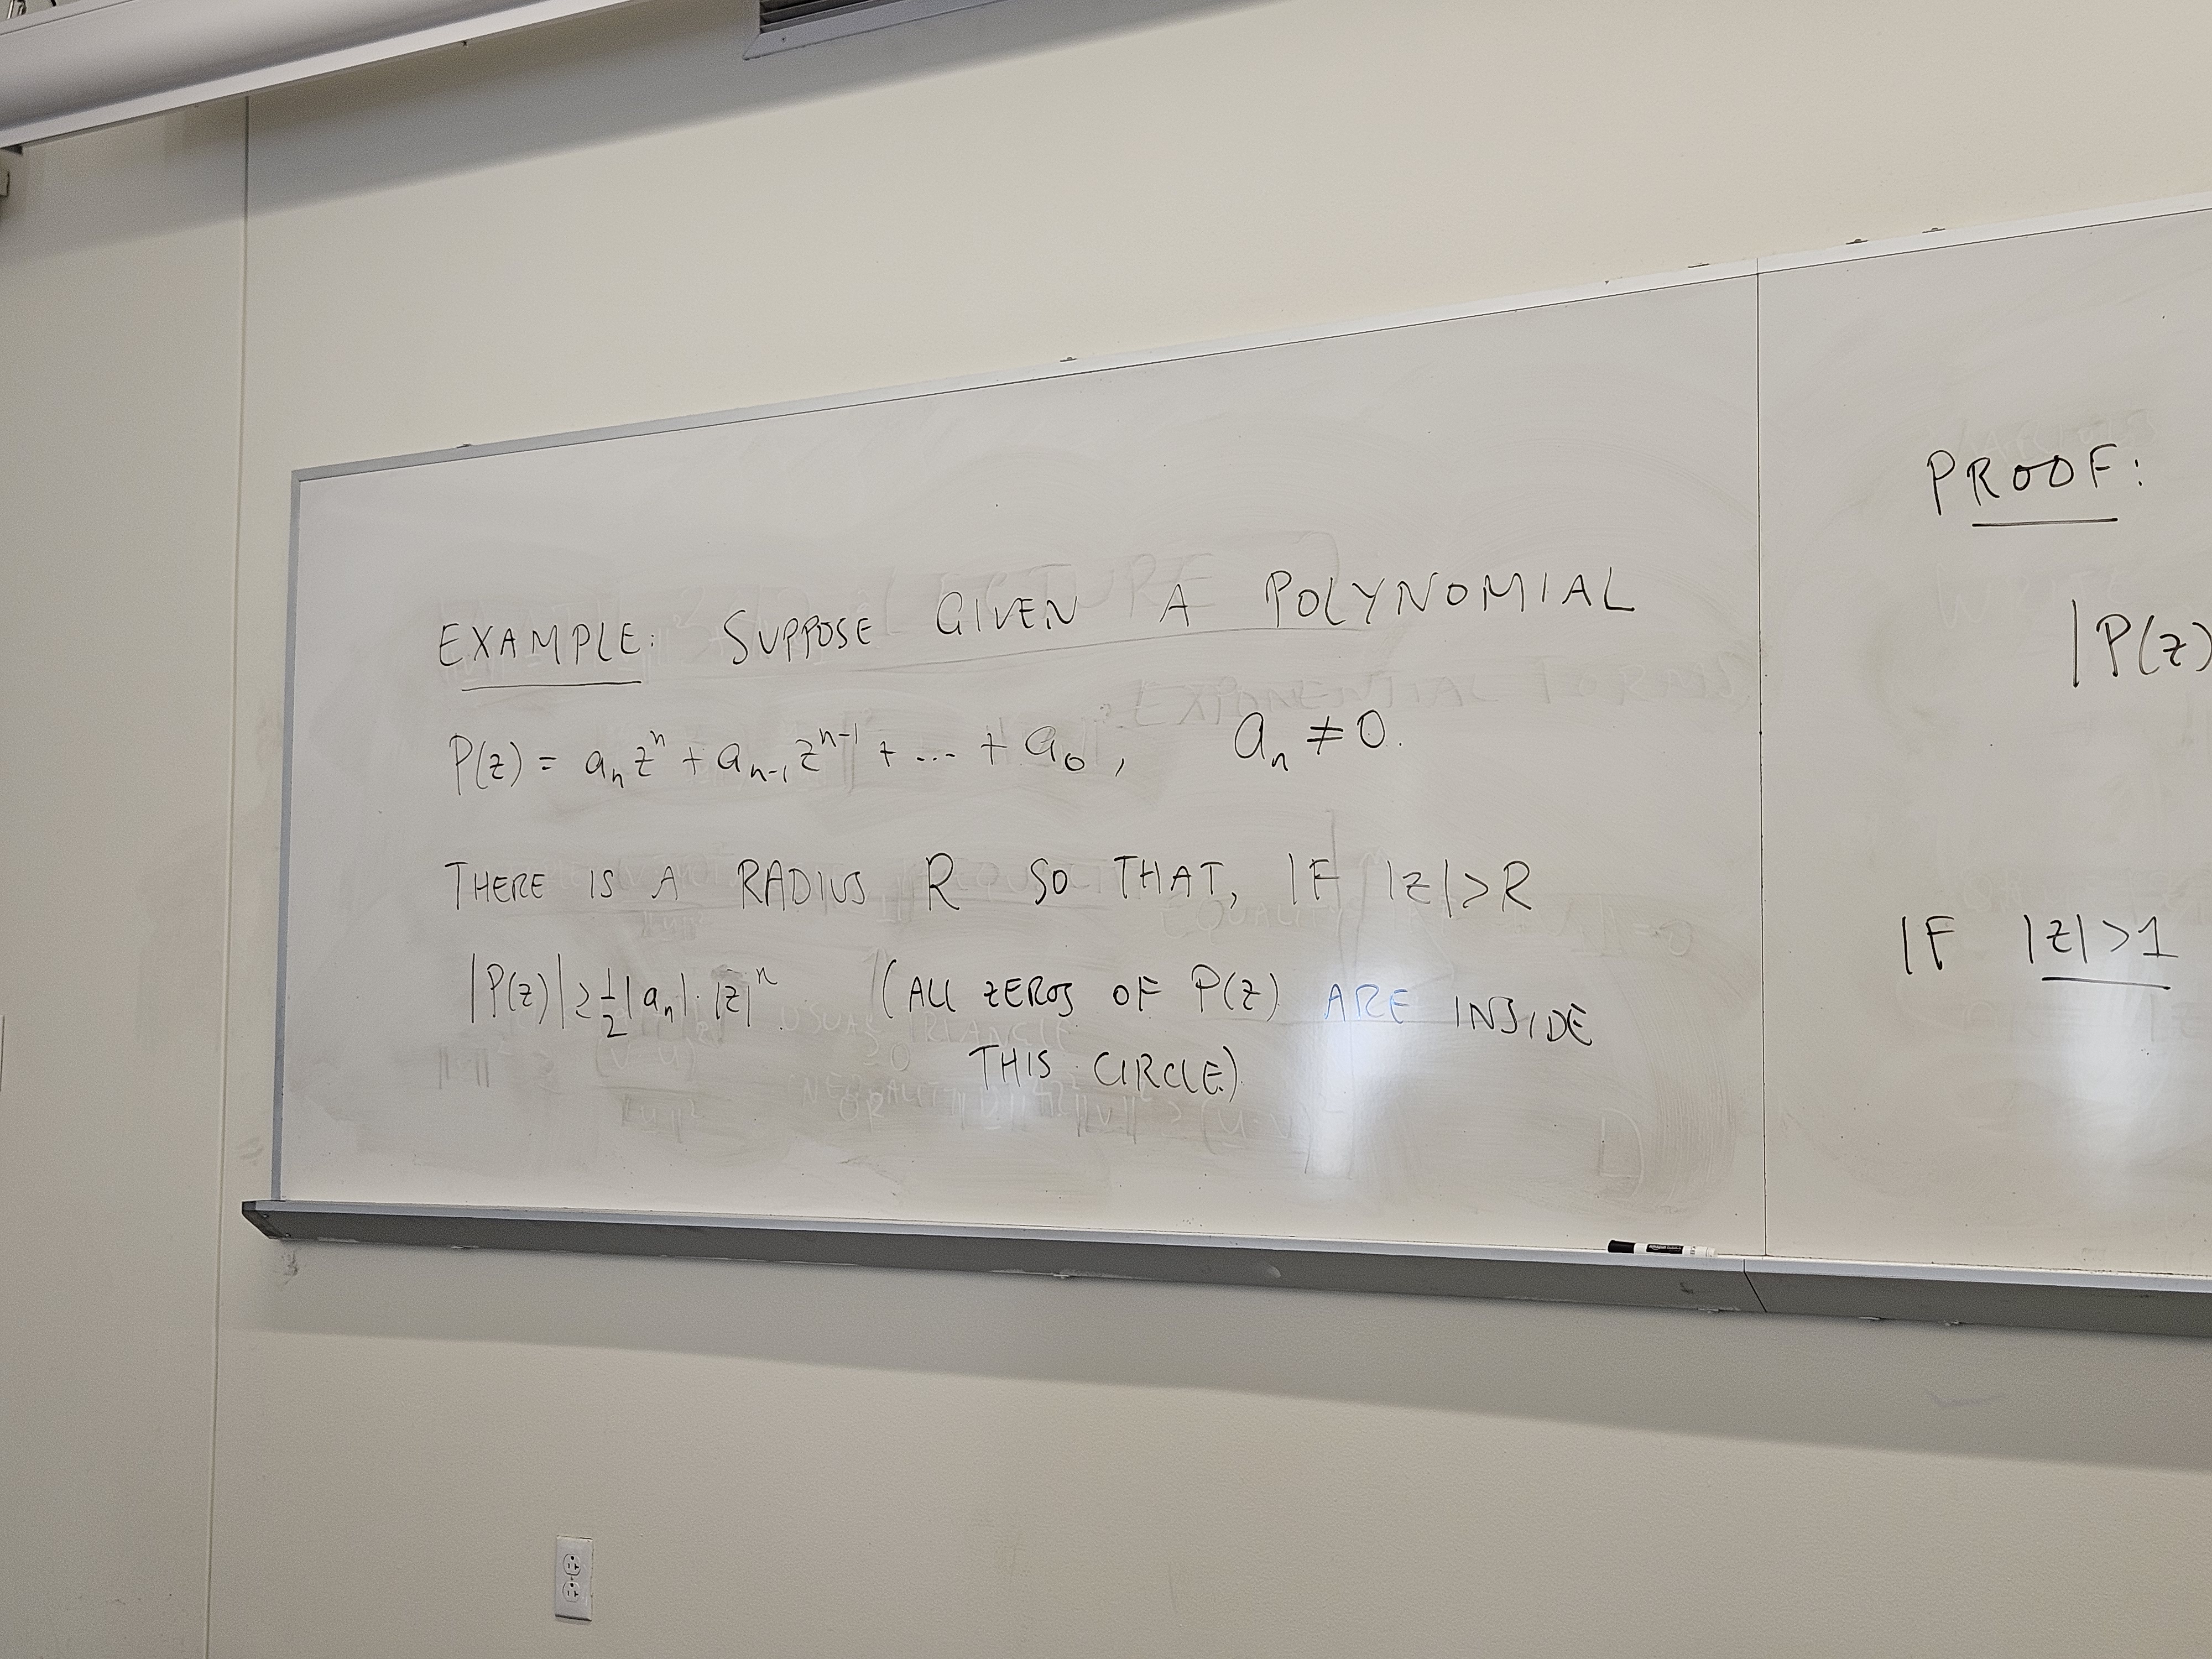 EXAMPLE: SUPPOSE GIVEN A POLYNOMIAL
P(z) = aₙzⁿ + aₙ₋₁zⁿ⁻¹ + ... + a₀, aₙ ≠ 0.
THERE IS A RADIUS R SO THAT, IF |z|>R
|P(z)| ≥ ½|aₙ|·|z|ⁿ. (ALL ZEROS OF P(z) ARE INSIDE
THIS CIRCLE)
PROOF:
|P(z)
IF |z|>1